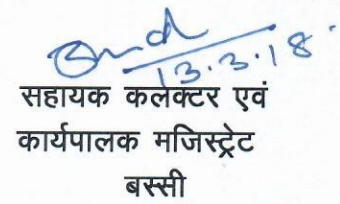 13.3.18
सहायक कलेक्टर एवं
कार्यपालक मजिस्ट्रेट
बस्सी